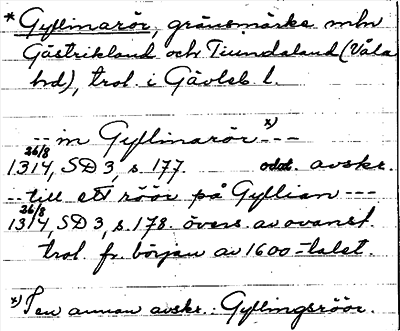 * Gyflinarör, gränsmärke mln
Gästrikland och Tiundaland (Våla
hd), trol. i Gävleb. l.
-- in Gyflinarör x) --
1314 26/8, SD 3, s. 177. odat. avskr.
-- till ett röör på Gyflian ---
1314 26/8, SD 3, s. 178. övers. av ovanst.
trol. fr. början av 1600-talet.
x) I en annan avskr.: Gyflingsröör.